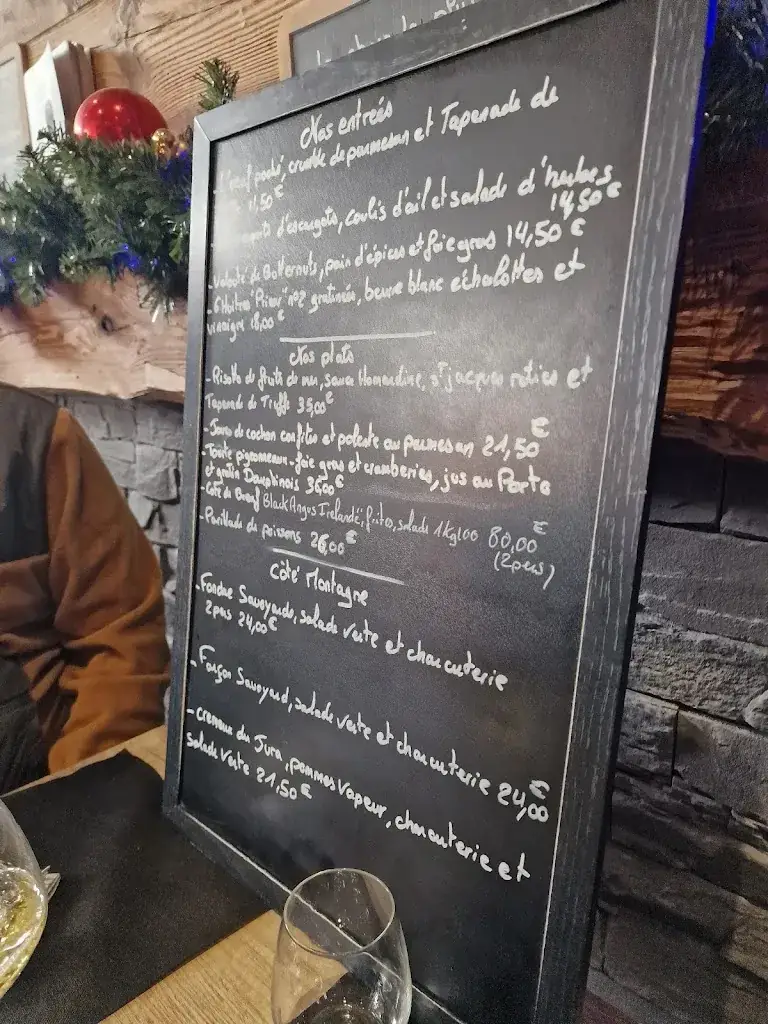 Nos entrées
L'oeuf poché, crumble de parmesan et Tapenade de
11,50€
d'escargots, coulis d'ail et salade d'herbes
14,50€
- Velouté de Butternuts, pain d'épices et foie gras 14,50€
- 6 Huitres "Prieur" n°2 gratinées, beurre blanc échalottes et
vinaigre 18,00€
Nos plats
- Risotto de fruits de mer, sauce Homardine, St jacques roties et
Tapenade de Truffe 35,00€
- Joues de cochon confites et polente au parmesan 21,50€
- Tourte pigeonneaux - foie gras et cramberries, jus au Porto
et gratin Dauphinois 36,00€
- Côte de Boeuf Black Angus Irlandë, frites, salade 1kg100 80,00€
(2pers)
- Parillade de poissons 26,00€
Côté Montagne
- Fondue Savoyarde, salade verte et charcuterie
2pers 24,00€
- Farçon Savoyard, salade verte et charcuterie 24,00€
- Cremeux du Jura, pommes vapeur, charcuterie et
salade verte 21,50€